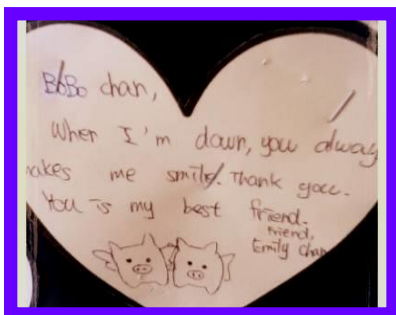 BoBo chan,
When I'm down, you alway
makes me smile. Thank you.
You is my best friend.
friend,
Emily chan